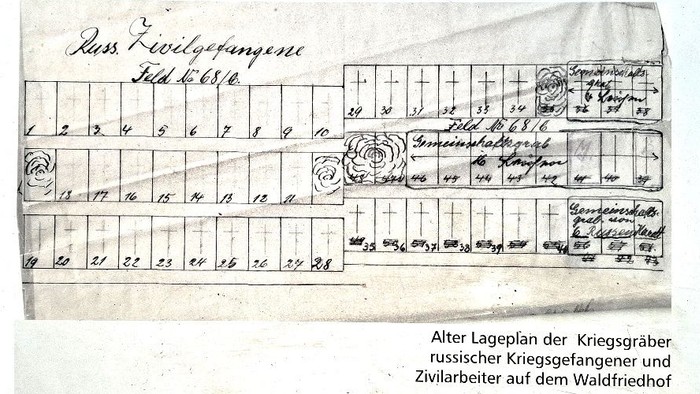 Russ. Zivilgefangene
Feld No 68/a.
1 2 3 4 5 6 7 8 9 10
18 17 16 15 14 13 12 11
19 20 21 22 23 24 25 26 27 28
29 30 31 32 33 34
Gemeinschafts-
grab
36 37 38
Feld No 68/b
Gemeinschaftsgrab
46 45 44 43 42 41 40 39
Gemeinschafts-
grab von
6
35 36 37 38 39
Alter Lageplan der Kriegsgräber
russischer Kriegsgefangener und
Zivilarbeiter auf dem Waldfriedhof